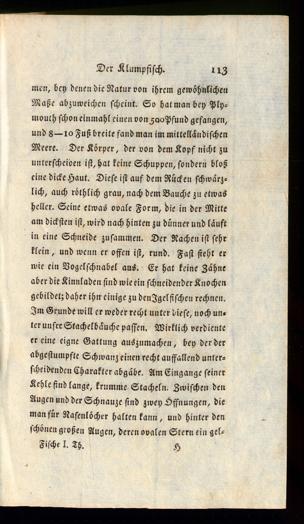 Der Klumpfisch. 113
men, bey denen die Natur von ihrem gewöhnlichen
Maße abzuweichen scheint. So hat man bey Ply-
mouth schon einmahl einen von 500 Pfund gefangen,
und 8—10 Fuß breite fand man im mittelländischen
Meere. Der Körper, der von dem Kopf nicht zu
unterscheiden ist, hat keine Schuppen, sondern bloß
eine dicke Haut. Diese ist auf dem Rücken schwärz-
lich, auch röthlich grau, nach dem Bauche zu etwas
heller. Seine etwas ovale Form, die in der Mitte
am dicksten ist, wird nach hinten zu dünner und läuft
in eine Schneide zusammen. Der Rachen ist sehr
klein, und wenn er offen ist, rund. Fast sieht er
wie ein Vogelschnabel aus. Er hat keine Zähne
aber die Kinnladen sind wie ein schneidender Knochen
gebildet; daher ihn einige zu den Igelfischen rechnen.
Im Grunde will er weder recht unter diese, noch un-
ter unsere Stachelbäuche passen. Wirklich verdiente
er eine eigne Gattung auszumachen, bey der der
abgestumpfte Schwanz einen recht auffallend unter-
scheidenden Charakter abgäbe. Am Eingange seiner
Kehle sind lange, krumme Stacheln. Zwischen den
Augen und der Schnauze sind zwey Öffnungen, die
man für Nasenlöcher halten kann, und hinter den
schönen großen Augen, deren ovalen Stern ein gel-
Fische I. Th. H